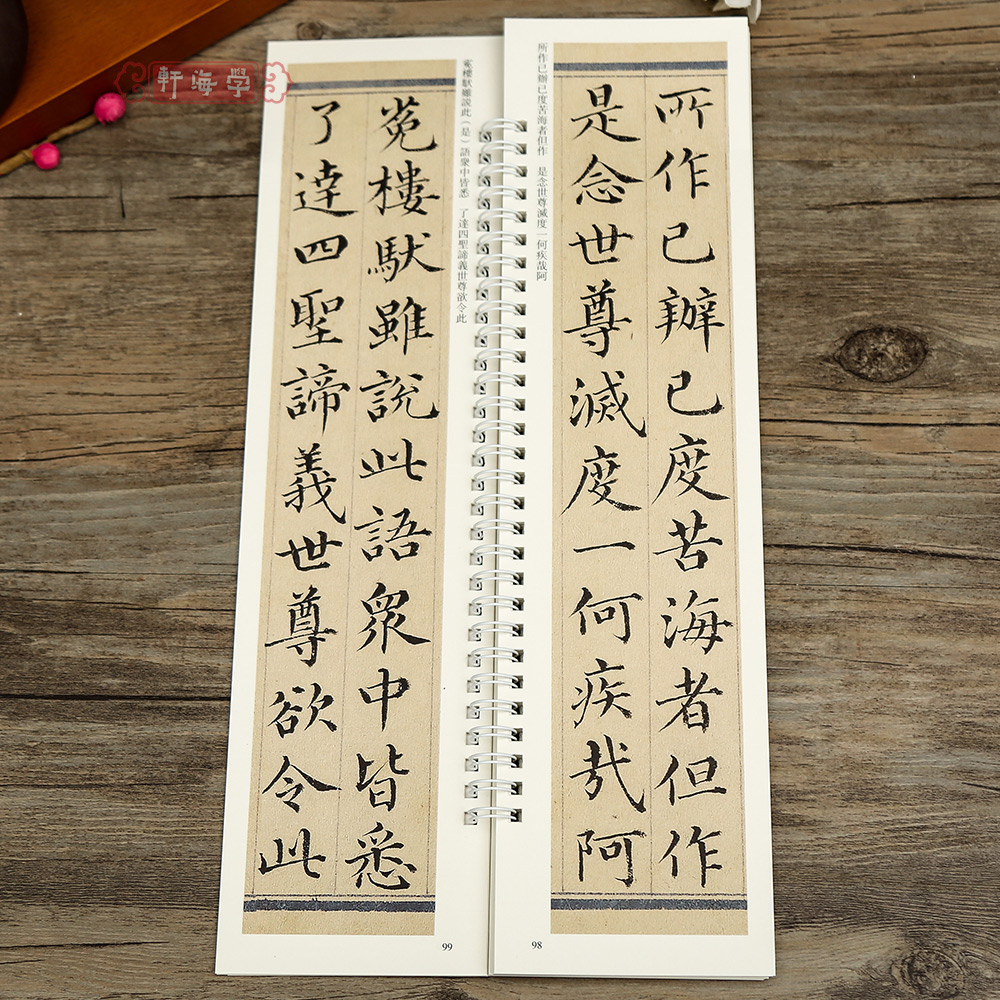 軒海學
所作已辦已度苦海者但作　是念世尊滅度一何疾哉阿
所作已辦已度苦海者但作
是念世尊滅度一何疾哉阿
98
菟樓馱雖説此（是）語衆中皆悉　了達四聖諦義世尊欲令此
菟樓馱雖說此語衆中皆悉
了達四聖諦義世尊欲令此
99